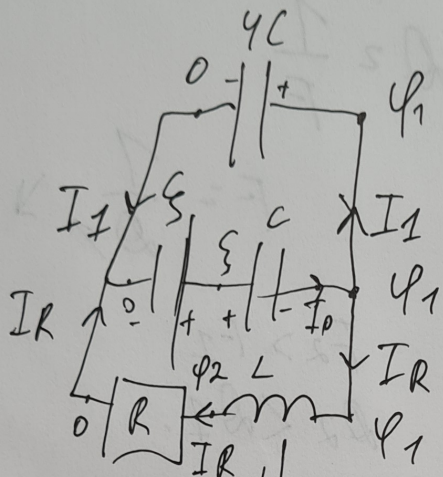 4C
0 - + φ1
I1 ξ ξ C I1
0 - + + - I0 φ1
IR IR
φ2 L
0 R IR φ1